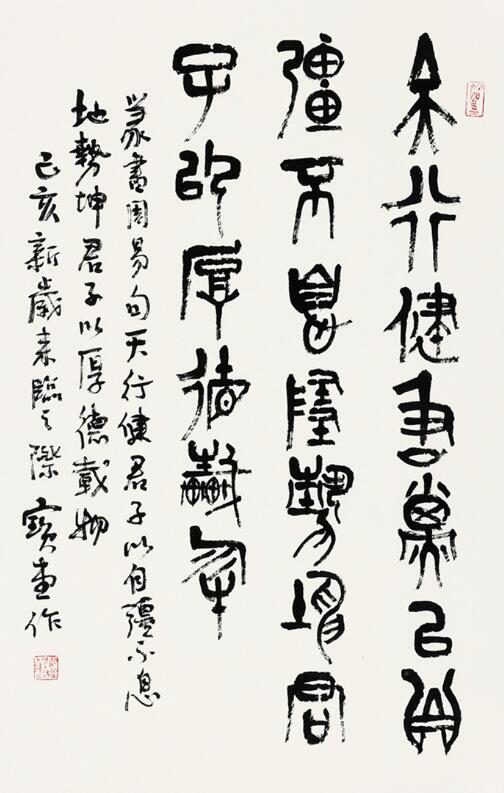 天行健君子以自
彊不息地勢坤君
子以厚德載物
篆書周易句天行健君子以自彊不息
地勢坤君子以厚德載物
己亥新歲來臨之際寶作